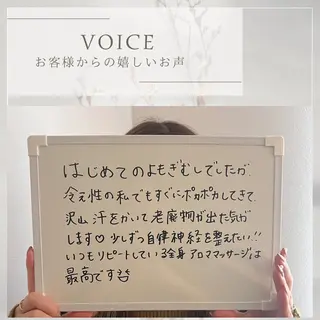 VOICE
お客様からの嬉しいお声
はじめてのよもぎむしでしたが、
冷え性の私でもすぐにポカポカしてきて
沢山汗をかいて老廃物が出た気が
します♡少しずつ自律神経を整えたい!!
いつもリピートしている全身アロママッサージは
最高です